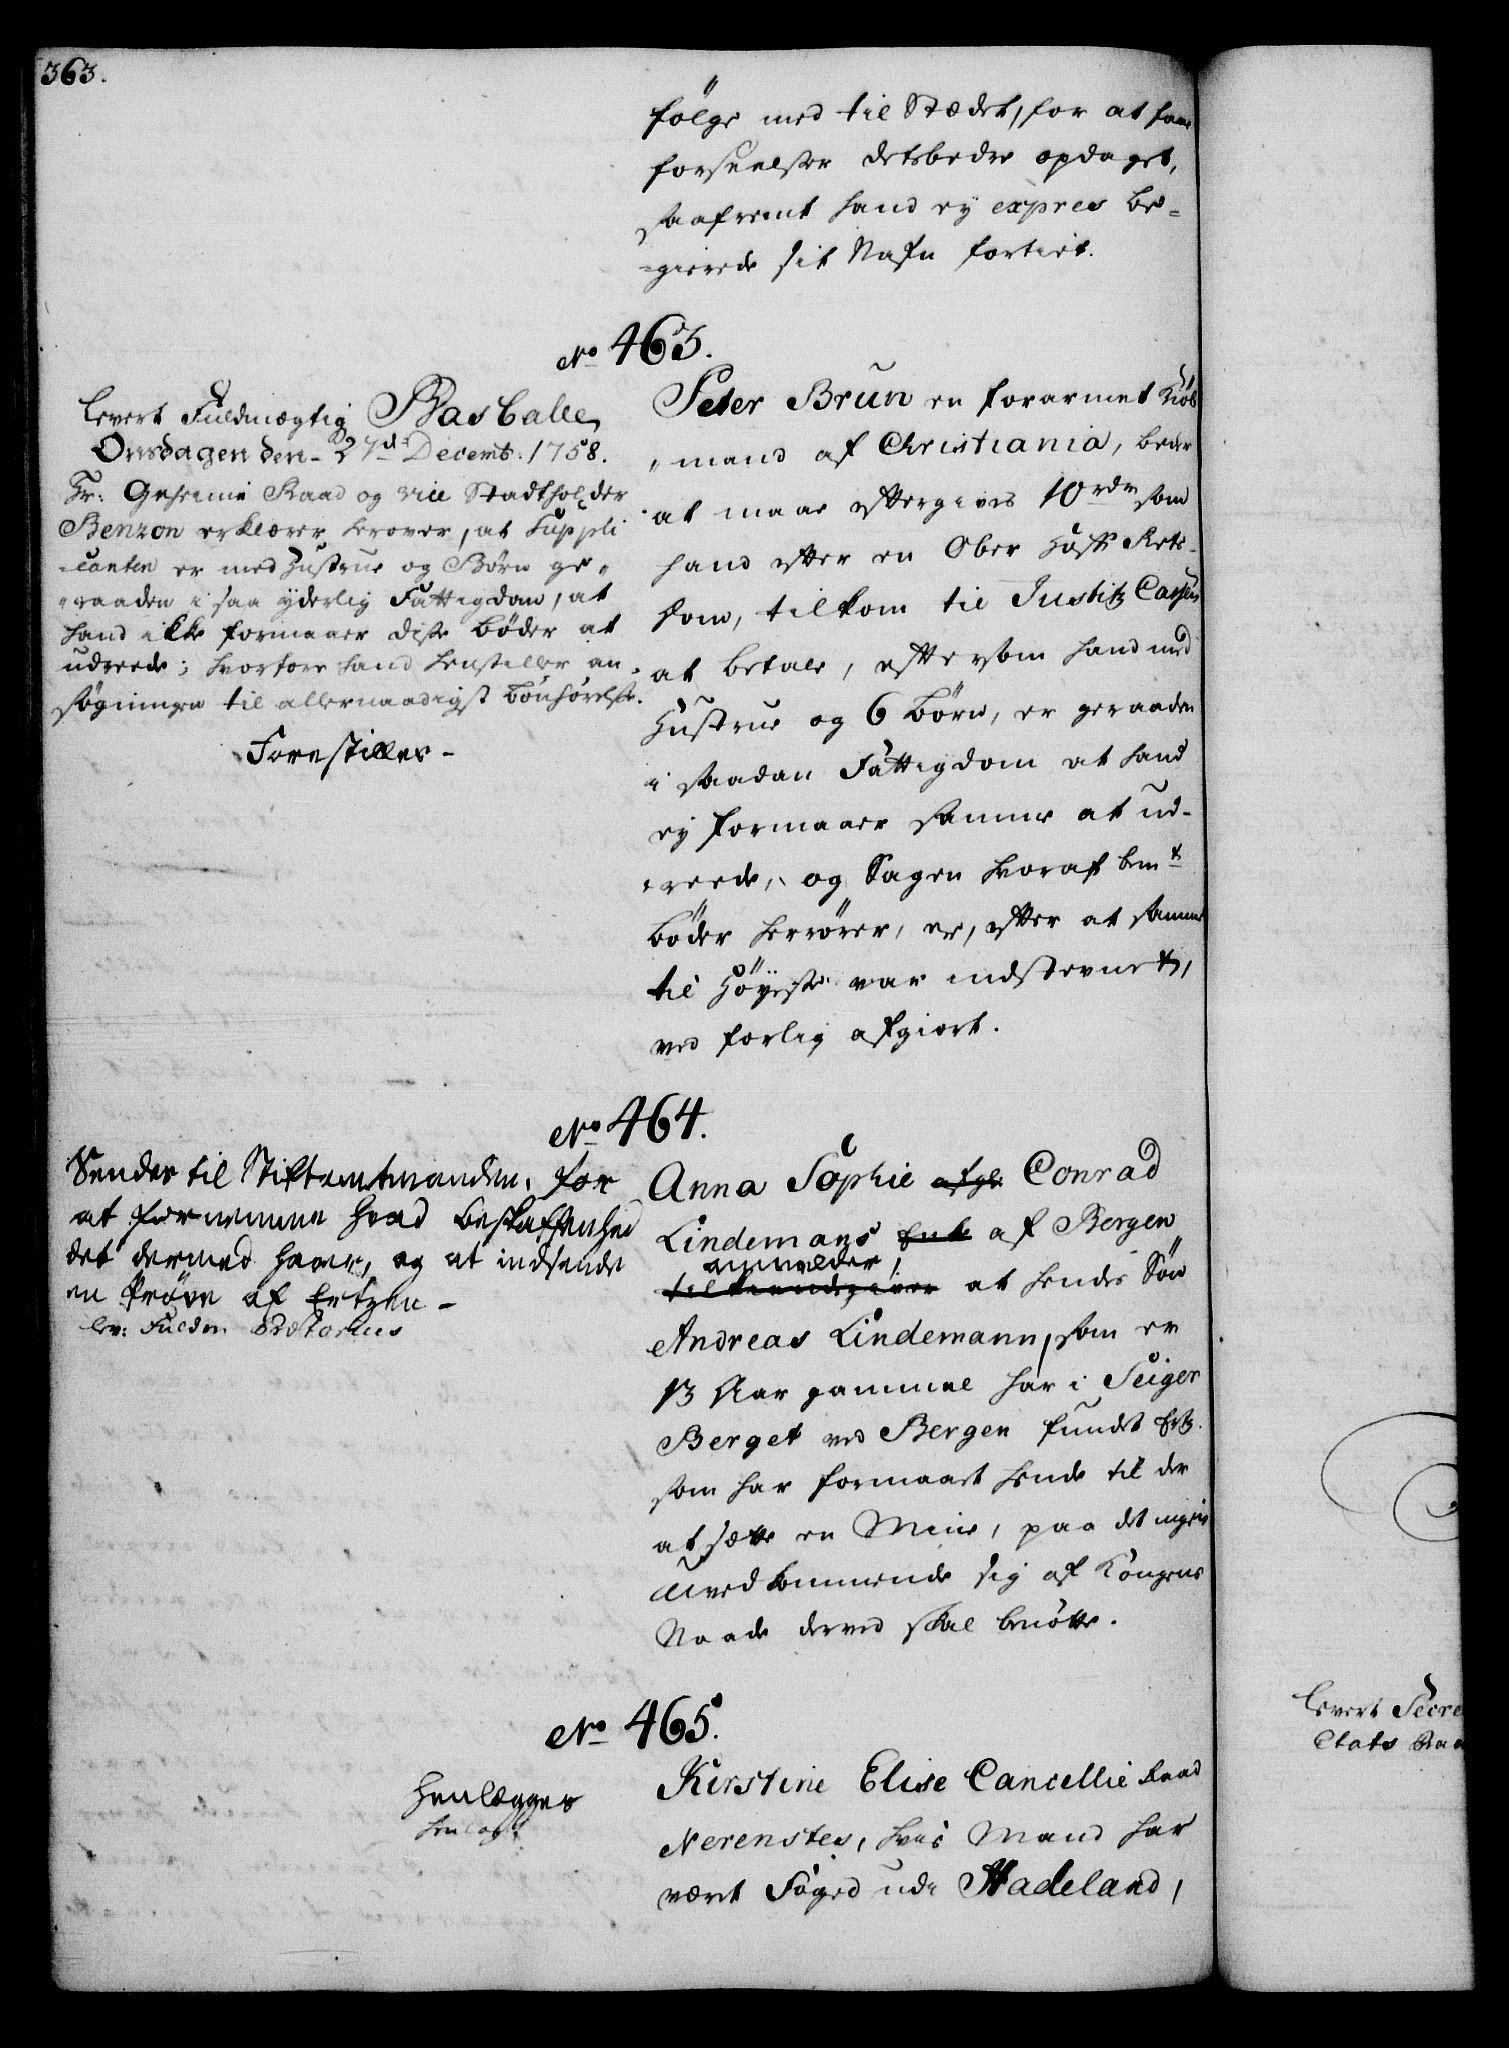 363.
følge med til Stædet, for at faae
forseelser detsbedre opdaget,
saafremt hand ey expres be-
-gierede sit Nafn fortiet.
No 463.
Levert Fuldmægtig Basballe
Onsdagen den 27de Decemb: 1758.
Hr: Geheime Raad og vice Stadtholder
Benzon erklærer herover, at Suppli
-canten er med Hustrue og Børn ge-
-raaden i saa yderlig Fattigdom, at
hand ikke formaaer disse bøder at
udreede; hvorfore hand henstiller an-
søgningen til allernaadigst bønhørelse.
Forestilles-
Peter Brun en forarmet Kiøb
-mand af Christiania, beder
at maae eftergives 10 rdr som
hand efter en Ober Hoff Rets-
dom, tilkom til Justitz Cassen
at betale, eftersom hand med
Hustrue og 6 børn, er geraaden
i saadan Fattigdom at hand
ey formaaer samme at ud-
-reede, og Sagen hvoraf bemt
bøder herrører, er, efter at samme
til Høyeste var indstevnet,
ved forlig afgiort.
No 464.
Sendes til Stiftamtmanden, for
at fornemme hvad beskaffenhed
det dermed haver, og at indsende
en Prøve af Ertzen-
lev: Fuldm Prætorius
Anna Sophie afgl: Conrad
Lindemans Enke af Bergen
anmelder,
tilkiendegiver at hendes Søn
Andreas Lindemann, som er
13 Aar gammel har i Seiger
Berget ved Bergen fundet Ertz.
som har formaaet hende til der
at sætte en Mine, paa det ingen
Uvedkommende sig af Kongens
Naade derved skal benøtte.
No 465.
Henlægges
henlagt
Kirstine Elise Cancellie Raad
Nerenstes, hvis Mand har
været Foged udi Hadeland,
Levert Secre
Etats Raa